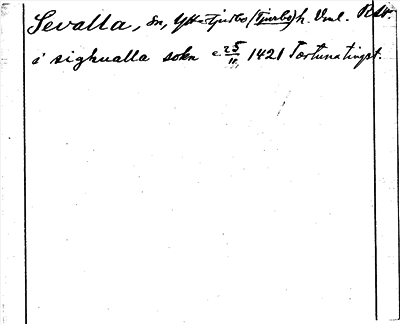 Sevalla, sn, Ytt-Tjurbo (Tjurbo) h. Vml. Bsv.
i sighualla sokn c. 25/11 1421 Tortuna tingst.